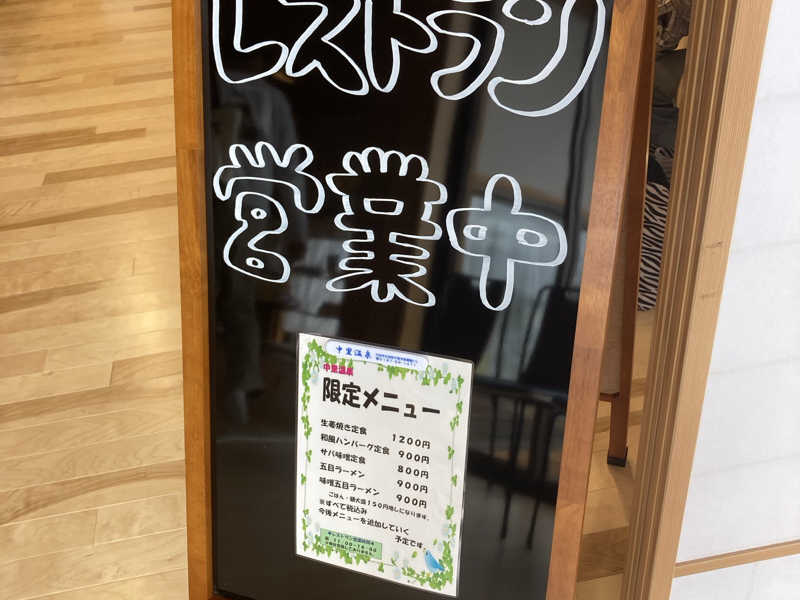 レストラン
営業中
中里温泉
中里温泉
限定メニュー
生姜焼き定食 1200円
和風ハンバーグ定食 900円
サバ味噌定食 800円
五目ラーメン 900円
味噌五目ラーメン 900円
ごはん・麺大盛150円増しになります。
※すべて税込み
今後メニューを追加していく
予定です。
11:00~14:00